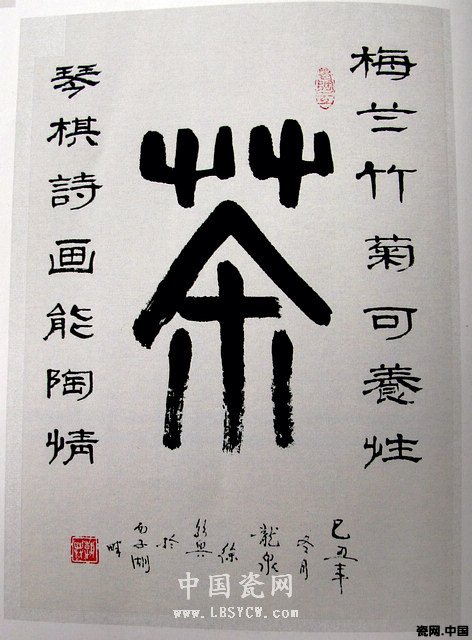 梅兰竹菊可養性
茶
琴棋詩画能陶情
己丑年
冬月
龍泉
徐
於
西子湖
畔
中国瓷网
WWW.LBSYCW.COM
瓷网.中国